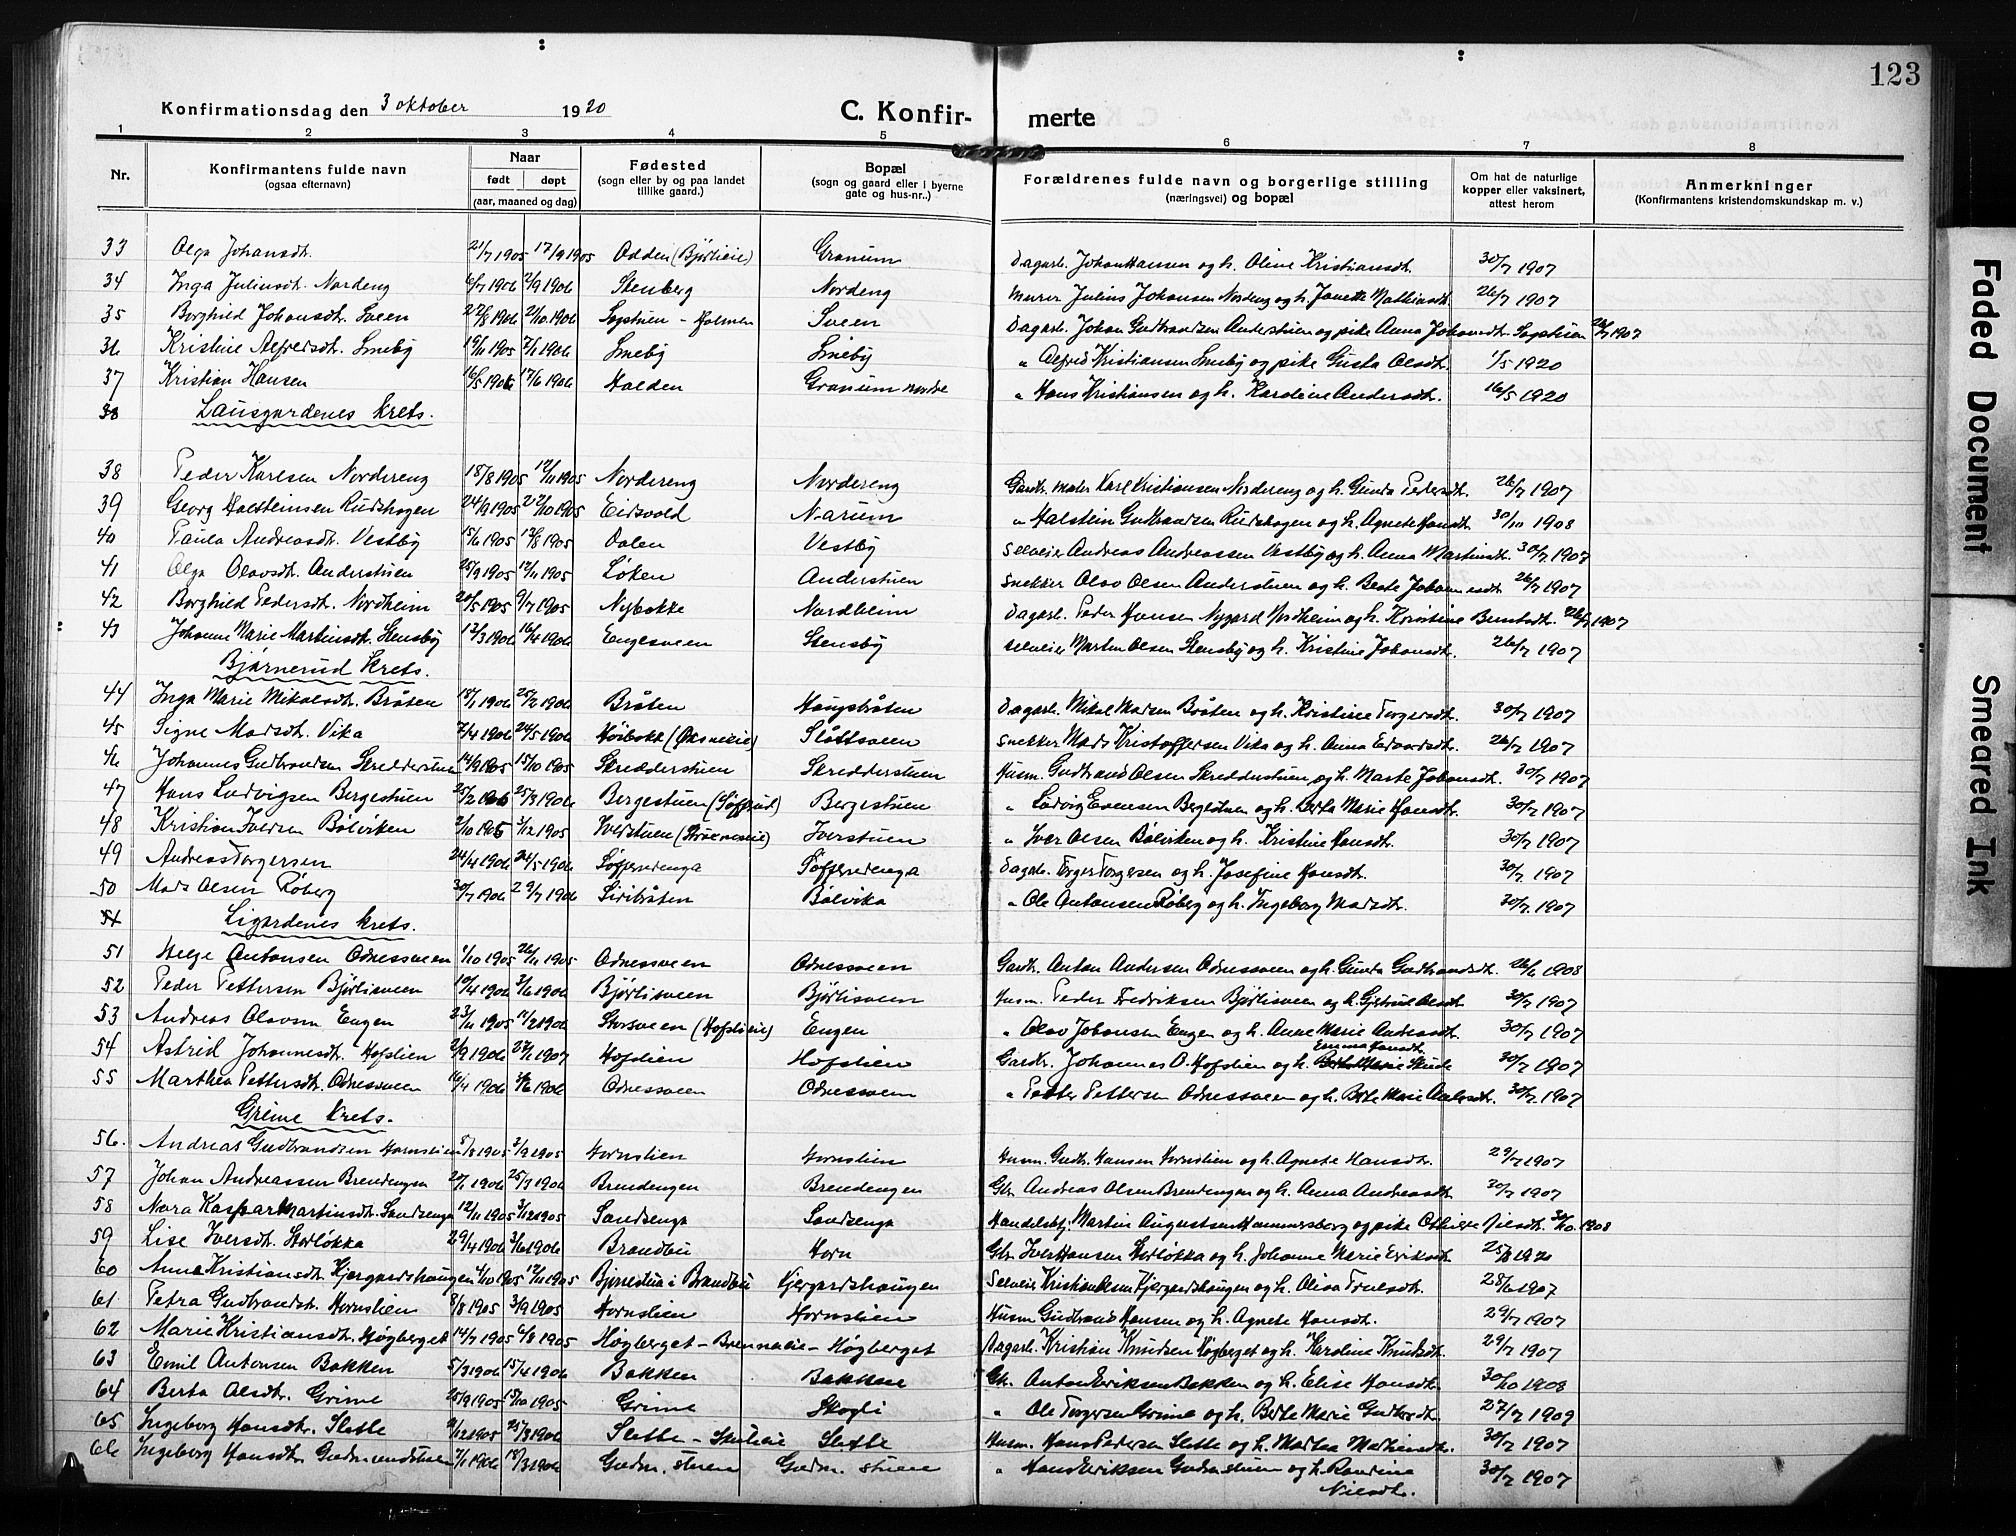 123
Konfirmationsdag den 3 oktober 1920
C. Konfir- merte
1 2 3 4 5 6 7 8
Nr.
Konfirmantens fulde navn
(ogsaa efternavn)
Naar
født døpt
(aar, maaned og dag)
Fødested
(sogn eller by og paa landet
tillike gaard.)
Bopæl
(sogn og gaard eller i byerne
gate og hus-nr..)
Forældrenes fulde navn og borgerlige stilling
(næringsvei) og bopæl
Om hat de naturlige
kopper eller vaksinert,
attest herom
Anmerkninger
(Konfirmantens kristendomskundskap m. v.)
33 Olga Johansdt. 21/7 1905 17/9 1905 Odden (Bjørlieie) Granum Dagarb. Johan Hansen og h. Oline Kristiansdt. 30/7 1907
34 Inga Juliusdt. Nordeng 6/7 1906 2/9 1906 Stenberg Nordeng Murer Julius Johansen Nordeng og h. Janette Mathiasdt. 26/7 1907
35 Borghild Johansdt. Sveen 22/8 1906 2/10 1906 Sopstuen - Holmen Sveen Dagarb. Johan Gudbrandsen Anderstuen og pike Anna Johansdt. Sopstuen 26/7 1907
36 Kristine Alfredsdt. Smeby 19/11 1905 7/1 1906 Smeby Smeby " Alfred Kristiansen Smeby og pike Gusta Olsdt. 1/5 1920
37 Kristian Hansen 16/5 1906 17/6 1906 Halden Granum nordre " Hans Kristiansen og h. Karoline Andersdt. 16/5 1920
38 Lausgardenes krets.
38 Peder Karlsen Nordereng 18/8 1905 12/11 1905 Nordereng Nordereng Gardbr. maler Karl Kristiansen Nordereng og h. Gunda Pedersdt. 26/7 1907
39 Georg Halsteinsen Rudshagen 24/9 1905 22/10 1905 Eidsvold Narum " Halstein Gudbrandsen Rudshagen og h. Agnete Hansdt. 30/10 1908
40 Paula Andreasdt. Vestby 15/6 1905 13/8 1905 Dalen Vestby Selveier Andreas Andreassen Vestby og h. Anna Martinsdt. 30/7 1907
41 Olga Olavsdt. Anderstuen 25/9 1905 12/11 1905 Løken Anderstuen Snekker Olav Olsen Anderstuen og h. Beate Johannesdt. 26/7 1907
42 Borghild Pedersdt. Nordheim 20/5 1905 9/7 1905 Nybakke Nordheim Dagarb. Peder Hansen Nygard Nordheim og h. Kristine Berntsdt. 26/7 1907
43 Johanne Marie Martinsdt. Stensby 12/3 1906 16/4 1906 Engesveen Stensby Selveier Martin Olsen Stensby og h. Kristine Johansdt. 26/7 1907
Bjørnerud krets.
44 Inga Marie Mikalsdt. Bråten 18/1 1906 25/2 1906 Bråten Haugsbråten Dagarb. Mikal Madsen Bråten og h. Kristine Torgersdt. 30/7 1907
45 Signe Madsdt. Vika 7/4 1906 24/5 1906 Høibakk (Øksneeie) Slåttsveen Snekker Mads Kristoffersen Vika og h. Anna Edvardsdt. 26/7 1907
46 Johannes Gudbrandsen Skredderstuen 14/9 1905 15/10 1905 Skredderstuen Skredderstuen Husm. Gudbrand Olsen Skredderstuen og h. Marte Johansdt. 30/7 1907
47 Hans Ludvigsen Bergestuen 25/2 1906 25/3 1906 Bergestuen (Tøfsrud) Bergestuen " Ludvig Evensen Bergestuen og h. Berta Marie Hansdt. 30/7 1907
48 Kristian Iversen Bølviken 2/10 1905 3/12 1905 Iverstuen Iverstuen " Iver Olsen Bølviken og h. Kristine Hansdt. 30/7 1907
49 Andreas Torgersen 24/4 1906 24/5 1906 Tøfsrudenga Tøfsrudenga Dagarb. Torger Torgersen og h. Josefine Hansdt. 30/7 1907
50 Mads Olsen Røberg 30/7 1906 29/7 1906 Siribråten Bølvika " Ole Antonsen Røberg og h. Ingeborg Madsdt. 30/7 1907
51 Ligardenes krets.
51 Helge Antonsen Odnessveen 1/10 1905 26/11 1905 Odnessveen Odnessveen Gardbr. Anton Andersen Odnessveen og h. Gunda Gudbrandsdt. 26/6 1908
52 Peder Pettersen Bjørlisveen 10/4 1906 3/6 1906 Bjørlisveen Bjørlisveen Husm. Peder Fredriksen Bjørlisveen og h. Gjertrud Olsdt. 30/7 1907
53 Andreas Olavsen Engen 23/11 1905 11/2 1906 Storsveen (Hofslieie) Engen " Olav Johansen Engen og h. Anne Marie Andreasdt. 30/7 1907
54 Astrid Johannesdt. Hofslien 2/9 1906 27/1 1907 Hofslien Hofslien Gardbr. Johannes O. Hofslien og h. Emma Hansdt. 30/7 1907
55 Marthea Pettersdt. Odnessveen 16/4 1906 3/6 1906 Odnessveen Odnessveen " Petter Pettersen Odnessveen og h. Berte Marie Andersdt. 30/7 1907
Grime krets.
56. Andreas Gudbrandsen Hornslien 8/8 1905 3/9 1905 Hornslien Hornslien Husm. Gudbr. Hansen Hornslien og h. Agnete Hansdt. 29/7 1907
57 Johan Andreassen Brendengen 20/1 1906 25/7 1906 Brendengen Brendengen Gbr. Andreas Olsen Brendengen og h. Anna Andreasdt. 30/7 1907
58 Nora Kaspara Martinsdt. Sandsenga 12/11 1905 3/12 1905 Sandsenga Sandsenga Handelsbtj. Martin Augustsen Hammersborg og pike Othilie Nilsdt. 30/10 1908
59 Lise Iversdt. Storløkka 29/4 1906 3/6 1906 Brandbu Horn Gbr. Iver Hansen Storløkka og h. Johanne Marie Eriksdt. 25/8 1920
60 Anna Kristiansdt. Kjærgardshaugen 4/10 1905 12/11 1905 Bjørrestua i Brandbu Kjergardshaugen Selveier Kristian Olsen Kjergardshaugen og h. Olina Truelsdt. 28/6 1907
61 Petra Gudbrandsdt. Hornslien 8/8 1905 3/9 1905 Hornslien Hornslien Husm Gudbrand Hansen og h. Agnete Hansdt. 29/7 1907
62 Marie Kristiansdt. Høgberget 14/7 1905 6/8 1905 Høgberget - Brennaeie Høgberget Dagarb. Kristian Knudsen Høgberget og h. Karoline Knudsdt. 29/7 1907
63 Emil Antonsen Bakken 5/3 1906 15/4 1906 Bakken Bakken Gbr. Anton Eriksen Bakken og h. Elise Hansdt. 30/10 1908
64 Berta Olsdt. Grime 25/9 1905 15/10 1905 Grime Skogli " Ole Torgersen Grime og h. Berte Marie Gudbrdt. 27/7 1909
65 Ingeborg Hansdt. Slette 2/12 1905 25/3 1906 Slette - Skutieie Slette Husm. Hans Pedersen Slette og h. Martea Mathiasdt. 30/7 1907
66 Ingeborg Hansdt. Gudmundstuen 7/1 1906 18/3 1906 Gudm. stuen Gudm. stuen " Hans Eriksen Gudm stuen og h. Randine Nilsdt. 30/7 1907
Faded Document
Smeared Ink